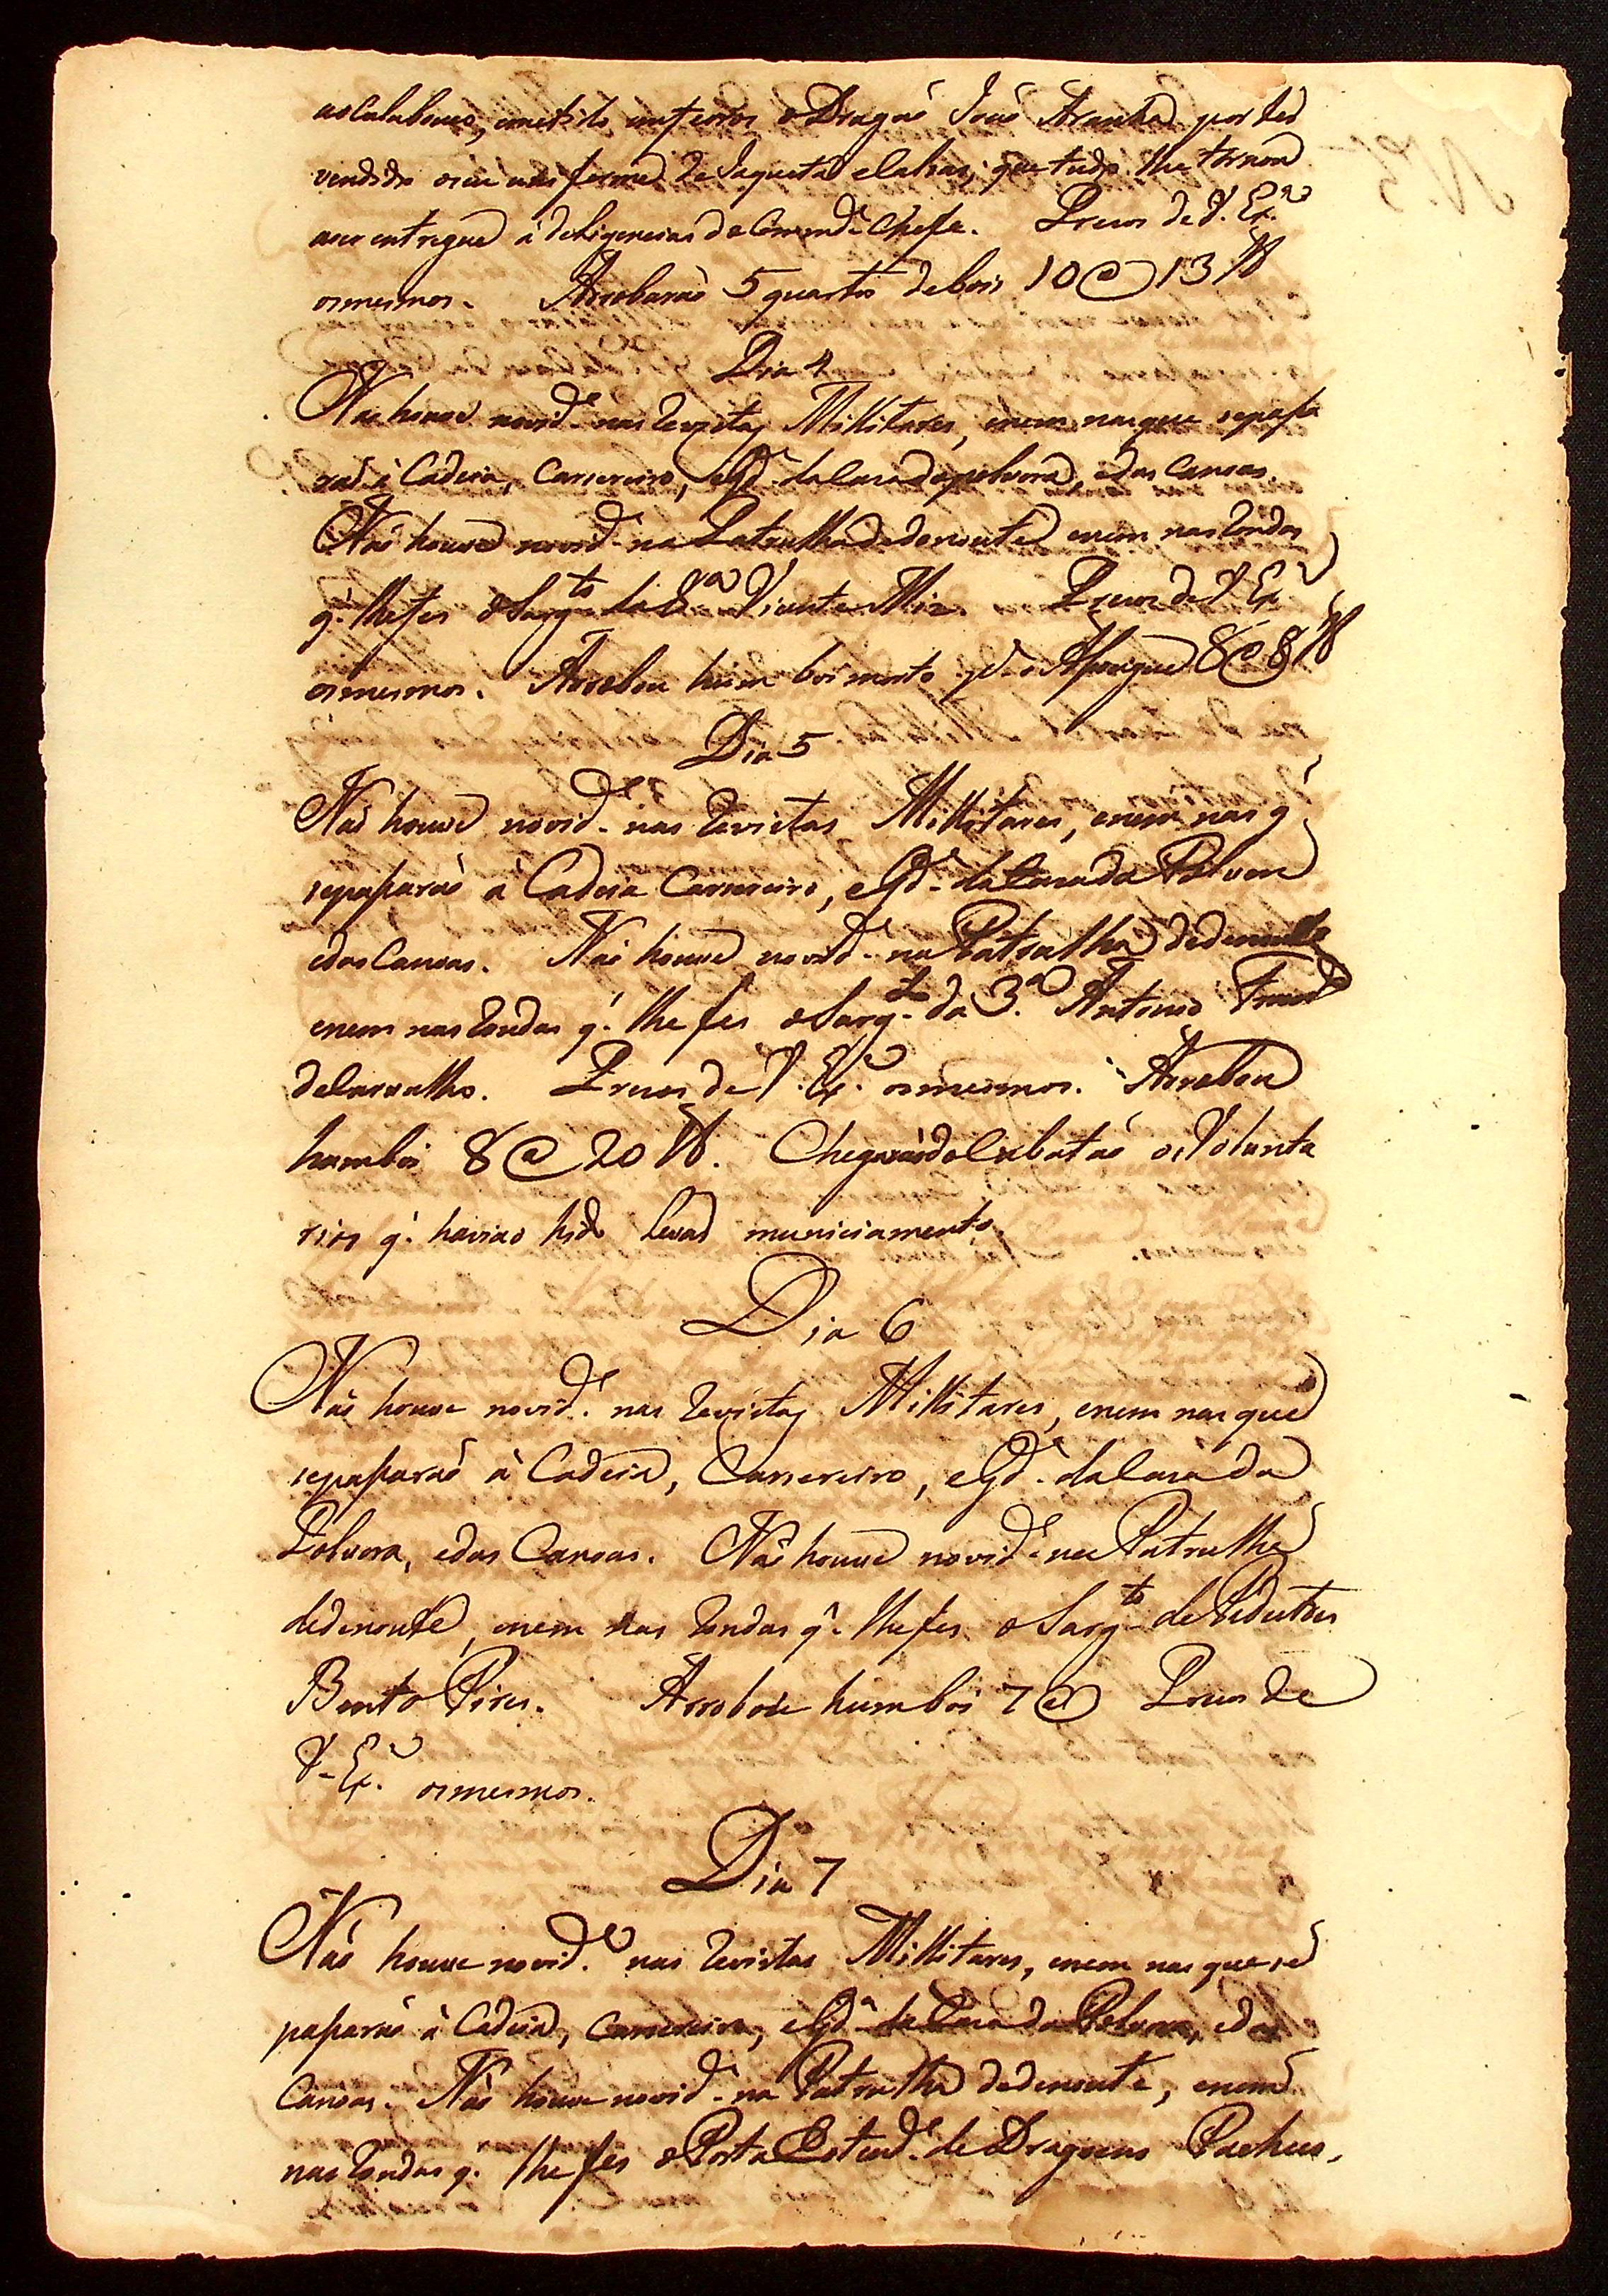 ao Calabouço, emetido em ferros o Dragaõ José Aranha por ter
vendido o seu uniforme de Jaqueta e calsas, que tudo lhe tornou
a ser entregue á deligencias do Comand.e Chefe. Prezos de V. Ex.a
os mesmos. Arrobaraõ 5 quartos de bois 10 @ 13 lb
Dia 4
Naõ houve novid.e nas Revistas Millitares, enem nas que se passa
raõ á Cadeia, Carsereiro, e G.da da Casa da polvora, e das Canoas.
Naõ houve novid.e na Patrulha dedenoute enem nas Rondas
q.' lhe fes o Sarg.to da 8.a Vicente Miz. Prezos de V. Ex.a
os mesmos. Arrobou hum boi morto p.a o Assougue 8 @ 8 lb
Dia 5
Naõ houve novid.e nas Revistas Millitares, enem nas q.'
se passaraõ á Cadeia Carsereiro, e G.da da Casa da Polvora
e das Canoas. Naõ houve novid.e na Patrulha dedenoute
enem nas Rondas q.' lhe fes o Sarg.to da 3.a Antonio
de Carvalho. Prezos de V. Ex.a os mesmos. Arrobou
hum boi 8 @ 20 lb. Chegaraõ do Cubataõ os Volunta
rios q.' haviaõ hido levar municiamento
Dia 6
Naõ houve novid.e nas Revistas Millitares, enem nas que
se passaraõ á Cadeia, Carsereiro, e G.da da Casa da
Polvora, e das Canoas. Naõ houve novid.e na Patrulha
dedenoute, enem nas Rondas q.' lhe fes o Sarg.to de
Bento Pires. Arrobou hum boi 7 @ Prezos de
V. Ex.a os mesmos.
Dia 7
Naõ houve novid.e nas Revistas Millitares, enem nas que se
passaraõ á Cadeia, Carsereiro, e G.da da Casa da Polvora, e das
Canoas. Naõ houve novid.e na Patrulha dedenoute, enem
nas Rondas q.' lhe fes o Porta Estend.e de Dragoens Pacheco,